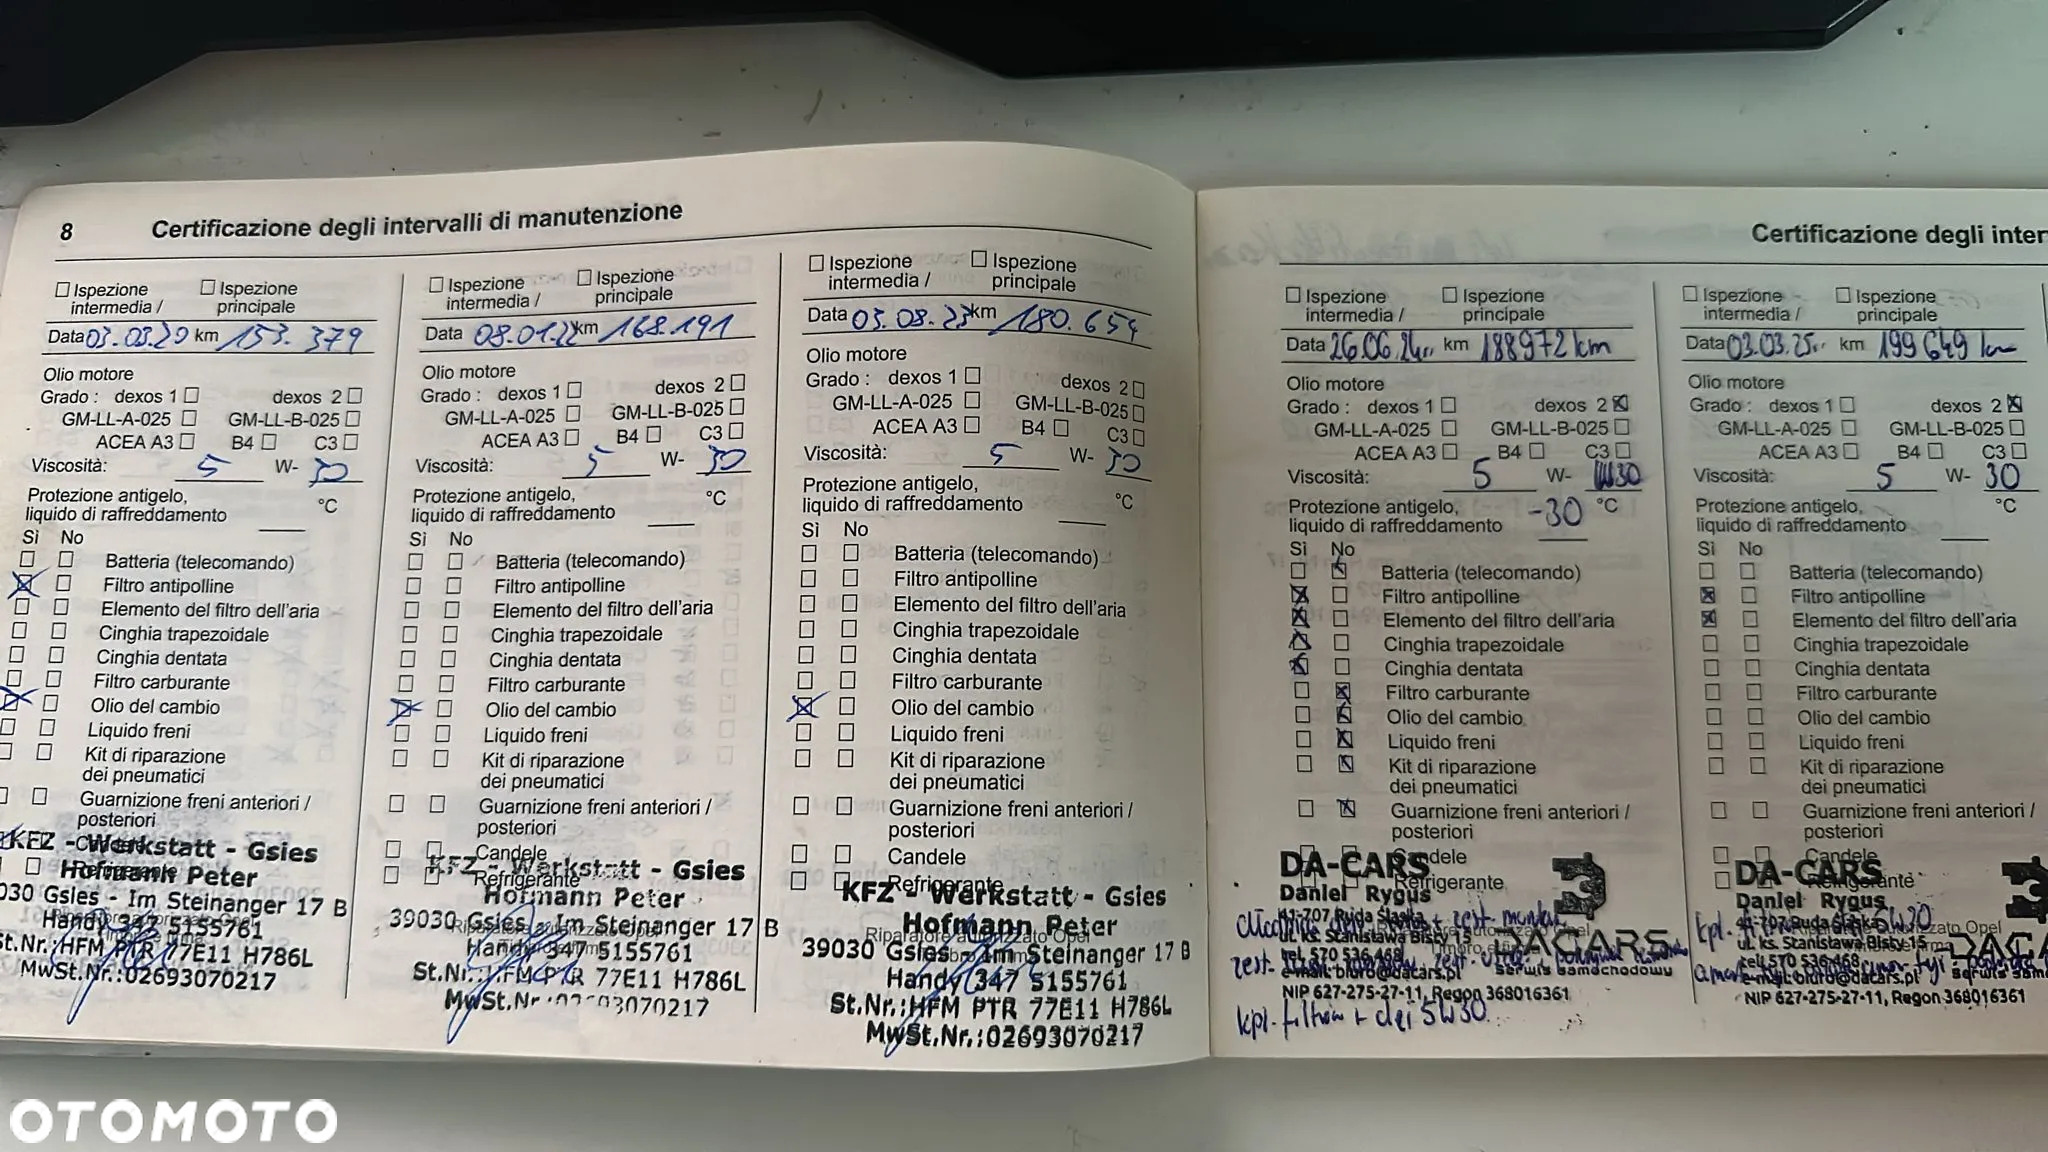 8 Certificazione degli intervalli di manutenzione
Ispezione intermedia / Ispezione principale
Data 03.03.20 km 153.379
Olio motore
Grado : dexos 1 dexos 2
GM-LL-A-025 GM-LL-B-025
ACEA A3 B4 C3
Viscosità: 5 W- 30
Protezione antigelo,
liquido di raffreddamento °C
Sì No
Batteria (telecomando)
Filtro antipolline
Elemento del filtro dell'aria
Cinghia trapezoidale
Cinghia dentata
Filtro carburante
Olio del cambio
Liquido freni
Kit di riparazione
dei pneumatici
Guarnizione freni anteriori /
posteriori
KFZ - Werkstatt - Gsies
Hofmann Peter
030 Gsies - Im Steinanger 17 B
Handy 347 5155761
St.Nr.:HFM PTR 77E11 H786L
MwSt.Nr.:02693070217
Ispezione intermedia / Ispezione principale
Data 08.01.22 km 168.191
Olio motore
Grado : dexos 1 dexos 2
GM-LL-A-025 GM-LL-B-025
ACEA A3 B4 C3
Viscosità: 5 W- 30
Protezione antigelo,
liquido di raffreddamento °C
Sì No
Batteria (telecomando)
Filtro antipolline
Elemento del filtro dell'aria
Cinghia trapezoidale
Cinghia dentata
Filtro carburante
Olio del cambio
Liquido freni
Kit di riparazione
dei pneumatici
Guarnizione freni anteriori /
posteriori
Candele
Refrigerante
KFZ - Werkstatt - Gsies
Hofmann Peter
39030 Gsies - Im Steinanger 17 B
Handy 347 5155761
St.Nr.:HFM PTR 77E11 H786L
MwSt.Nr.:02693070217
Ispezione intermedia / Ispezione principale
Data 03.08.23 km 180.654
Olio motore
Grado : dexos 1 dexos 2
GM-LL-A-025 GM-LL-B-025
ACEA A3 B4 C3
Viscosità: 5 W- 30
Protezione antigelo,
liquido di raffreddamento °C
Sì No
Batteria (telecomando)
Filtro antipolline
Elemento del filtro dell'aria
Cinghia trapezoidale
Cinghia dentata
Filtro carburante
Olio del cambio
Liquido freni
Kit di riparazione
dei pneumatici
Guarnizione freni anteriori /
posteriori
Candele
Refrigerante
KFZ - Werkstatt - Gsies
Hofmann Peter
Riparatore autorizzato Opel
39030 Gsies - Im Steinanger 17 B
Handy 347 5155761
St.Nr.:HFM PTR 77E11 H786L
MwSt.Nr.:02693070217
Certificazione degli inter
Ispezione intermedia / Ispezione principale
Data 26.06.24 km 188972 km
Olio motore
Grado : dexos 1 dexos 2
GM-LL-A-025 GM-LL-B-025
ACEA A3 B4 C3
Viscosità: 5 W- 30
Protezione antigelo,
liquido di raffreddamento -30 °C
Sì No
Batteria (telecomando)
Filtro antipolline
Elemento del filtro dell'aria
Cinghia trapezoidale
Cinghia dentata
Filtro carburante
Olio del cambio
Liquido freni
Kit di riparazione
dei pneumatici
Guarnizione freni anteriori /
posteriori
Candele
Refrigerante
DA-CARS
Daniel Rygus
41-707 Ruda Śląska
ul. ks. Stanisława Bisty 15
tel. 570 536 468
e-mail: biuro@dacars.pl
NIP 627-275-27-11, Regon 368016361
DACARS
Serwis samochodowy
kpl. filtrów + olej 5W30
Ispezione intermedia / Ispezione principale
Data 03.03.25 km 199649 km
Olio motore
Grado : dexos 1 dexos 2
GM-LL-A-025 GM-LL-B-025
ACEA A3 B4 C3
Viscosità: 5 W- 30
Protezione antigelo,
liquido di raffreddamento °C
Sì No
Batteria (telecomando)
Filtro antipolline
Elemento del filtro dell'aria
Cinghia trapezoidale
Cinghia dentata
Filtro carburante
Olio del cambio
Liquido freni
Kit di riparazione
dei pneumatici
Guarnizione freni anteriori /
posteriori
Candele
Refrigerante
DA-CARS
Daniel Rygus
41-707 Ruda Śląska
ul. ks. Stanisława Bisty 15
tel. 570 536 468
e-mail: biuro@dacars.pl
NIP 627-275-27-11, Regon 368016361
OTOMOTO